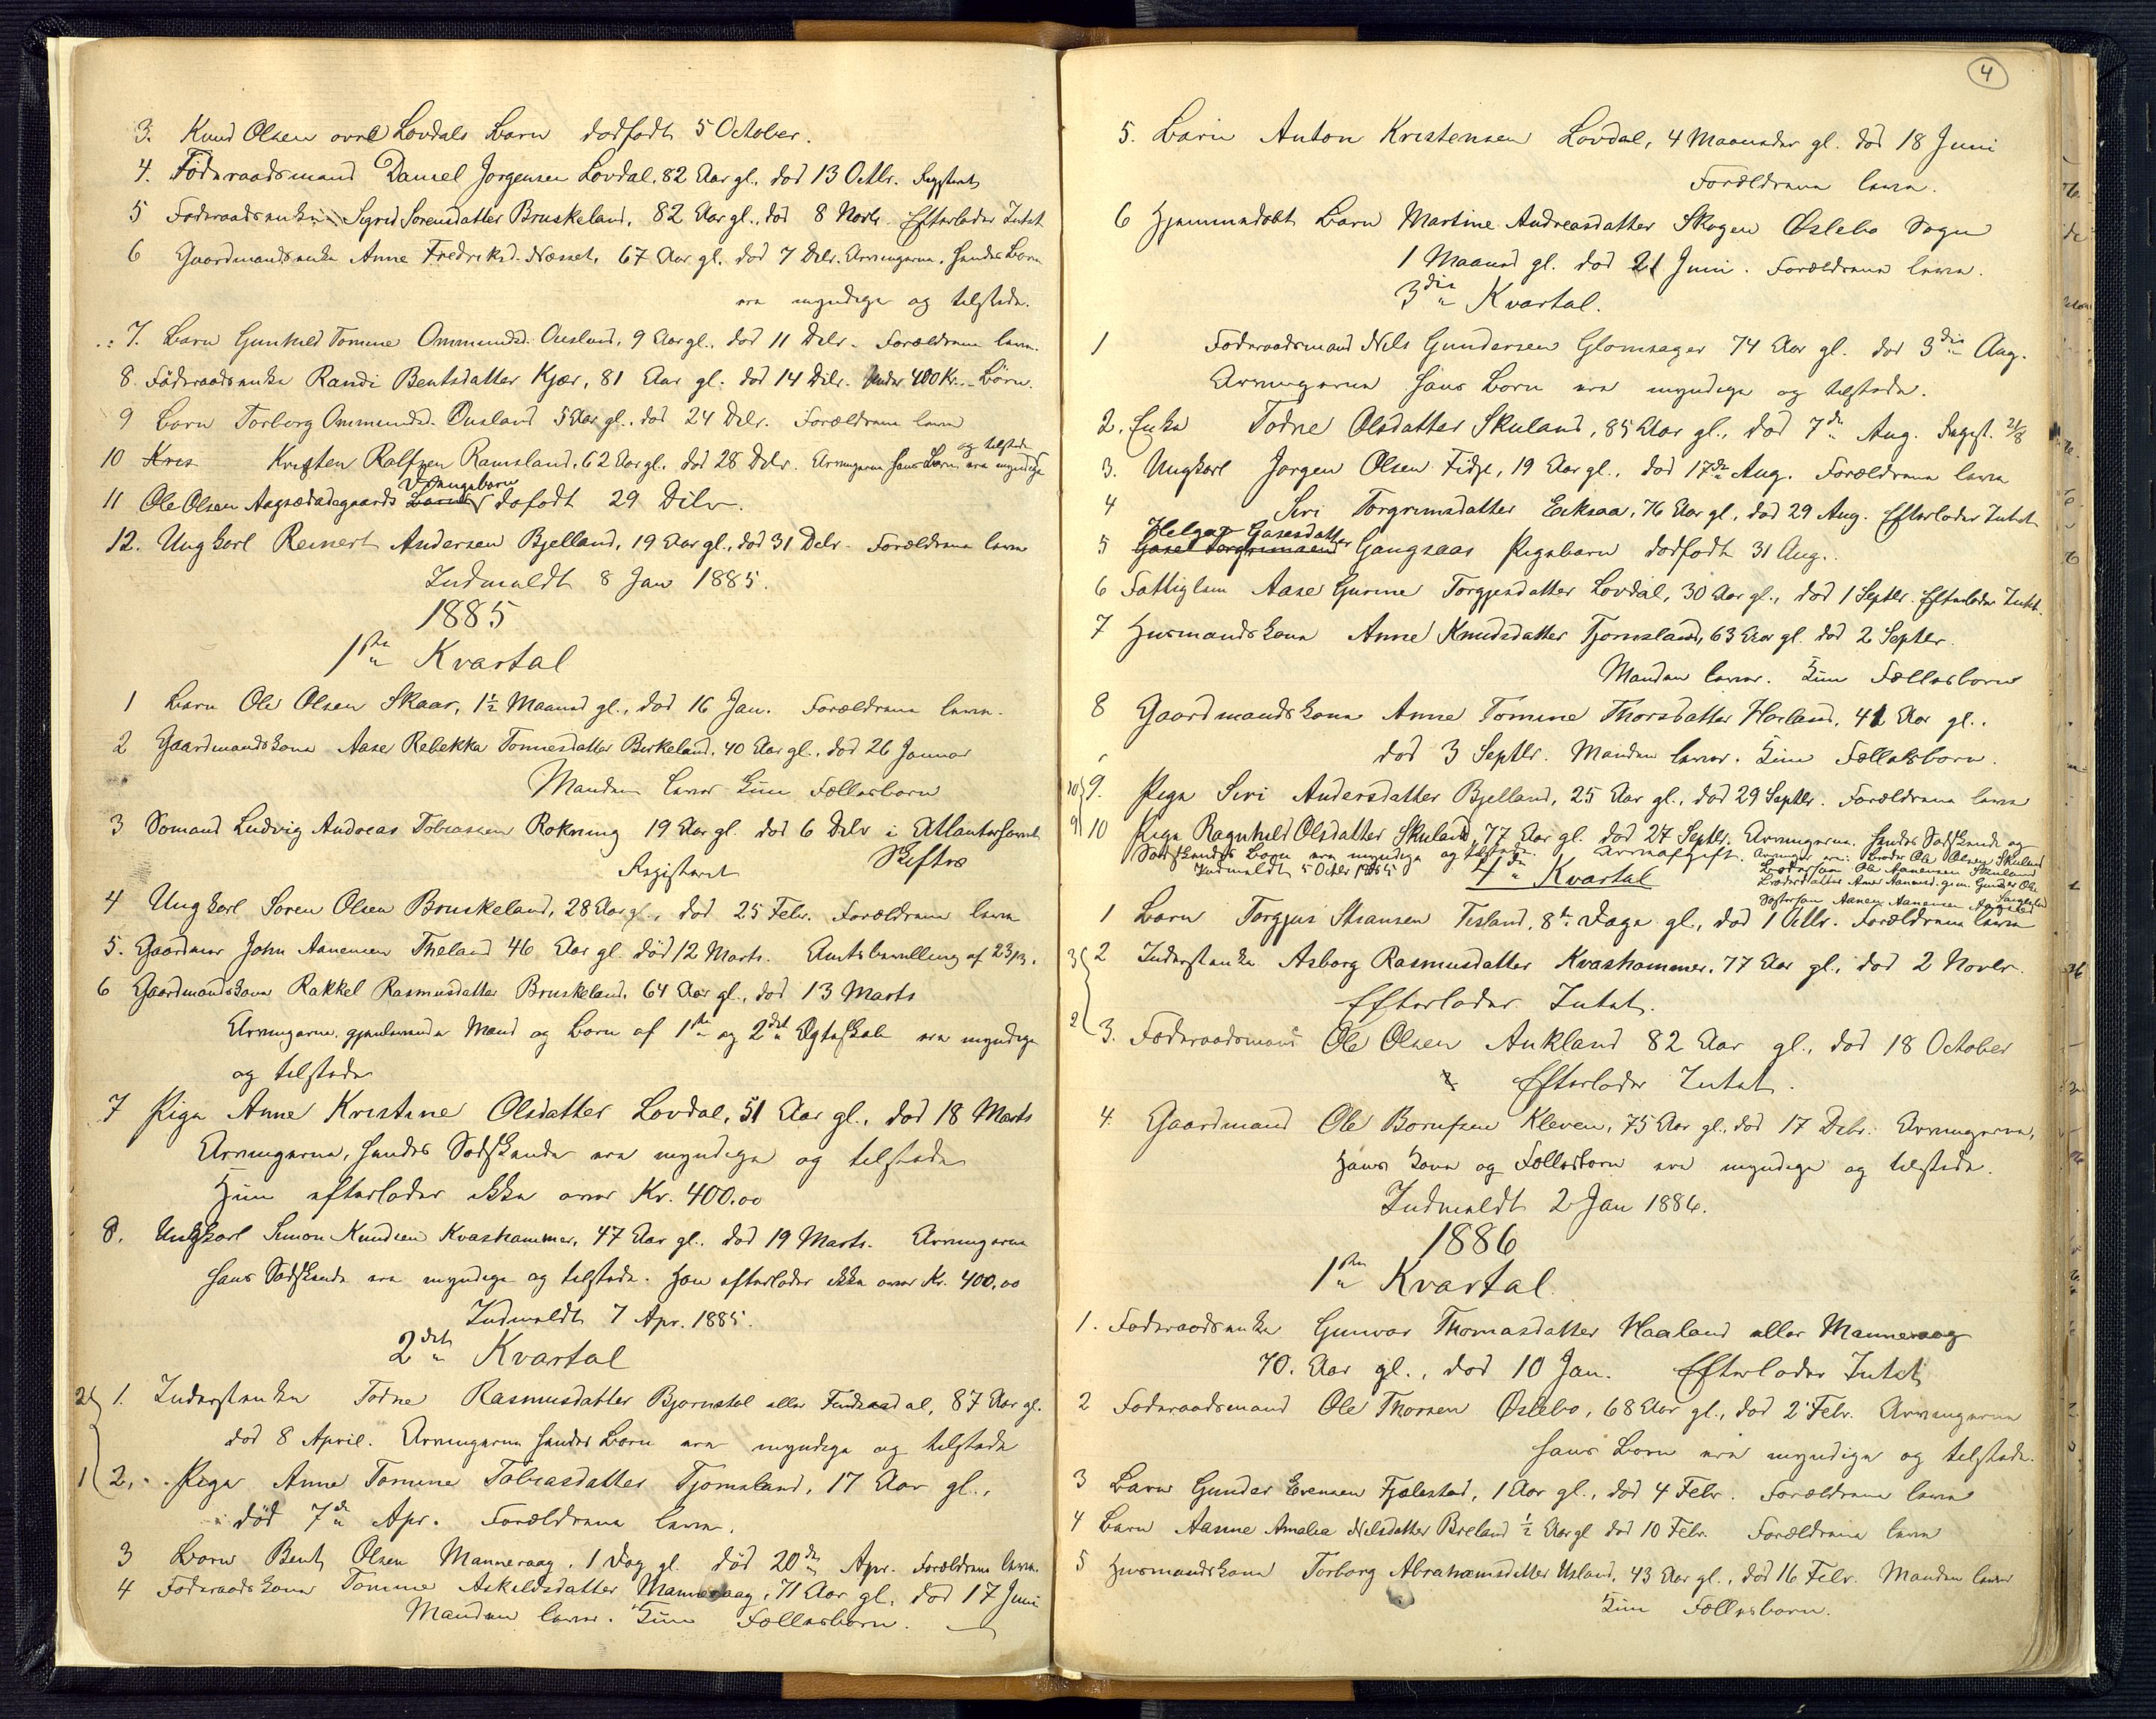 3. Knud Olsen øvre Lovdals Barn dødfødt 5 October.
4. Føderaadsmand Daniel Jørgensen Lovdal, 82 Aar gl., død 13 Octbr. Registeret
5 Føderaadsenken Sigrid Sørensdatter Bruskeland, 82 Aar gl., død 8 Novbr. Efterlader Intet
6 Gaardmandsenke Anne Fredriksd. Næsset, 67 Aar gl. død 7 Debr. Arvingerne, hendes Børn
ere myndige og tilstede.
7. Barn Gunhild Tomine Ommundsd. Ousland, 9 Aar gl. død 11 Debr. Forældrene leve.
8. Føderaadsenke Randi Bentsdatter Kjær, 81 Aar gl. død 14 Debr. Under 400 Kr. Børn.
9 Barn Torborg Ommundsd. Ousland 5 Aar gl. død 24 Debr. Forældrene leve
og tilstede
10 Kris Kristen Rolfsen Ramsland, 62 Aar gl. død 28 Debr. Arvingerne hans Børn ere myndige
Drengebarn
11 Ole Olsen Aagsædadegaards Barn døfødt 29 Debr.
12. Ungkarl Reinert Andersen Bjelland, 19 Aar gl., død 31 Debr. Forældrene leve
Indmeldt 8 Jan 1885.
1885
1ste Kvartal
1 Barn Ole Olsen Skaar, 1½ Maaned gl., død 16 Jan. Forældrene leve.
2 Gaardmandskone Aase Rebekka Tønnesdatter Birkeland, 40 Aar gl., død 26 Januar
Manden lever Kun Fællesbørn
3 Sømand Ludvig Andreas Tobiassen Rokning 19 Aar gl. død 6 Debr i Atlanterhavet
Registeret Skiftes
4 Ungkarl Søren Olsen Bruskeland, 28 Aar gl., død 25 Febr. Forældrene leve
5. Gaardmand John Aanensen Theland 46 Aar gl. død 12 Marts. Amtsbevilling af 23/3.
6 Gaardmandskone Rakkel Rasmusdatter Bruskeland, 64 Aar gl., død 13 Marts
Arvingerne, gjenlevende Mand og Børn af 1ste og 2det Ægteskab ere myndige
og tilstede
7 Pige Anne Kristine Olsdatter Lovdal, 51 Aar gl., død 18 Marts
Arvingerne, hendes Sødskende ere myndige og tilstede
Hun efterlader ikke over Kr. 400.00
8. Ungkarl Simon Knudsen Kvashammer, 47 Aar gl. død 19 Marts. Arvingerne
hans Sødskende ere myndige og tilstede. Han efterlader ikke over Kr. 400,00
Indmeldt 7 Apr. 1885.
2det Kvartal
2 1. Inderstenke Todne Rasmusdatter Bjørnstøl eller Findsadal, 87 Aar gl.
død 8 April. Arvingerne hendes Børn ere myndige og tilstede
1 2. Pige Anne Tomine Tobiasdatter Tjomsland, 17 Aar gl.,
død 7de Apr. Forældrene leve.
3 Barn Bent Olsen Manneraag, 1 Dag gl. død 20de Apr. Forældrene leve.
4 Føderaadskone Tomine Askildsdatter Manneraag, 71 Aar gl. død 17 Juni
Manden lever. Kun Fællesbørn.
4
5. Barn Anton Kristensen Lovdal, 4 Maaneder gl. død 18 Juni
Forældrene leve.
6 Hjemmedøbt Barn Martine Andreasdatter Skogen Øslebø Sogn
1 Maaned gl. død 21 Juni. Forældrene leve.
3die Kvartal.
1 Føderaadsmand Nils Gundersen Glomsager 74 Aar gl. død 3die Aug.
Arvingerne hans Børn ere myndige og tilstede.
2. Enke Todne Olsdatter Skuland, 85 Aar gl., død 7de Aug. Regist. 21/8
3. Ungkarl Jørgen Olsen Fidje, 19 Aar gl., død 17de Aug. Forældrene leve
4 Siri Torgrimsdatter Eiksaa, 76 Aar gl., død 29 Aug. Efterlader Intet
Helga Gasesdatter
5 Gasel Torgrimsens Gangsaas Pigebarn dødfødt 31 Aug.
6 Fattiglem Aase Gurine Torgjesdatter Lovdal, 30 Aar gl., død 1 Septbr. Efterlader Intet.
7 Husmandskone Anne Knudsdatter Tjomsland, 63 Aar gl. død 2 Septbr.
Manden lever. Kun Fællesbørn
8 Gaardmandskone Anne Tomine Thorsdatter Horland, 41 Aar gl.
død 3 Septbr. Manden lever. Kun Fællesbørn.
10 9. Pige Siri Andersdatter Bjelland, 25 Aar gl., død 29 Septbr. Forældrene leve
9 10 Pige Ragnhild Olsdatter Skuland, 77 Aar gl. død 27 Septbr. Arvingerne, hendes Sødskende og
Sødskendes Børn ere myndige og tilstede. Arveafgift. Arvinger ere: Broder Ole Olsen Skuland
Indmeldt 5 Octbr 1885 Brodersøn Ole Aanensen Skuland
4de Kvartal
Broderdatter Anne Aanensd. gm. Gunder Ols.
Søstersøn Aanen Aanensen
1 Barn Torgjus Stiansen Tisland, 8te Dage gl., død 1 Octbr. Forældrene leve
3 2 Inderstenke Asborg Rasmusdatter Kvashammer, 77 Aar gl., død 2 Novbr.
Efterlader Intet.
2 3. Føderaadsmand Ole Olsen Aukland 82 Aar gl., død 18 October
Efterlader Intet.
4. Gaardmand Ole Borufsen Kleven, 75 Aar gl., død 17 Debr. Arvingerne,
hans Kone og Fællesbørn ere myndige og tilstede.
Indmeldt 2 Jan 1886.
1886
1ste Kvartal.
1. Føderaadsenke Gunvor Thomasdatter Haaland eller Manneraag
70. Aar gl., død 10 Jan. Efterlader Intet
2 Føderaadsmand Ole Thorsen Øslebø, 68 Aar gl., død 2 Febr. Arvingerne
hans Børn ere myndige og tilstede.
3 Barn Gunder Evensen Fjælestad, 1 Aar gl., død 4 Febr. Forældrene leve
4 Barn Aasine Amalia Nilsdatter Breland ½ Aar gl død 10 Febr. Forældrene leve
5 Husmandskone Torborg Abrahamsdatter Usland, 43 Aar gl., død 16 Febr. Manden lever
Kun Fællesbørn.